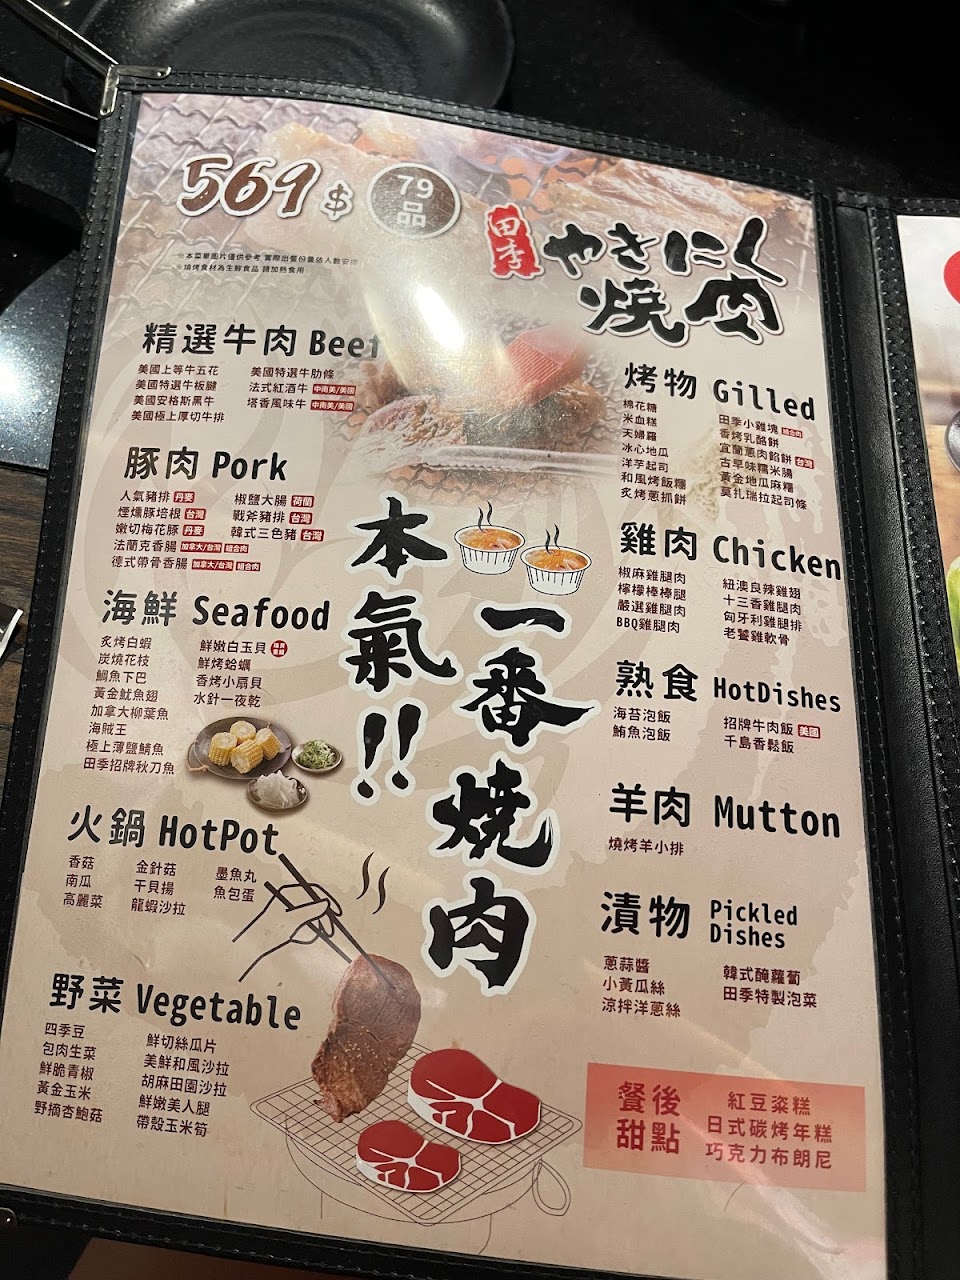 569$
79品
※本菜單圖片僅供參考 實際出餐份量依人數安排
※燒烤食材為生鮮食品 請加熱食用
田季
やきにく
燒肉
精選牛肉 Beef
美國上等牛五花 美國特選牛肋條
美國特選牛板腱 法式紅酒牛 中南美/美國
美國安格斯黑牛 塔香風味牛 中南美/美國
美國極上厚切牛排
豚肉 Pork
人氣豬排 丹麥 椒鹽大腸 荷蘭
煙燻豚培根 台灣 戰斧豬排 台灣
嫩切梅花豚 丹麥 韓式三色豬 台灣
法蘭克香腸 加拿大/台灣 組合肉
德式帶骨香腸 加拿大/台灣 組合肉
海鮮 Seafood
炙烤白蝦 鮮嫩白玉貝
炭燒花枝 鮮烤蛤蠣
鯛魚下巴 香烤小扇貝
黃金魷魚翅 水針一夜乾
加拿大柳葉魚
海賊王
極上薄鹽鯖魚
田季招牌秋刀魚
火鍋 HotPot
香菇 金針菇 墨魚丸
南瓜 干貝揚 魚包蛋
高麗菜 龍蝦沙拉
野菜 Vegetable
四季豆 鮮切絲瓜片
包肉生菜 美鮮和風沙拉
鮮脆青椒 胡麻田園沙拉
黃金玉米 鮮嫩美人腿
野摘杏鮑菇 帶殼玉米筍
本氣!!
一番燒肉
烤物 Gilled
棉花糖 田季小雞塊 組合肉
米血糕 香烤乳酪餅
天婦羅 宜蘭蔥肉餡餅 台灣
冰心地瓜 古早味糯米腸
洋芋起司 黃金地瓜麻糬
和風烤飯糰 莫扎瑞拉起司條
炙烤蔥抓餅
雞肉 Chicken
椒麻雞腿肉 紐澳良辣雞翅
檸檬棒棒腿 十三香雞腿肉
嚴選雞腿肉 匈牙利雞腿排
BBQ雞腿肉 老饕雞軟骨
熟食 HotDishes
海苔泡飯 招牌牛肉飯 美國
鮪魚泡飯 千島香鬆飯
羊肉 Mutton
燒烤羊小排
漬物 Pickled Dishes
蔥蒜醬 韓式醃蘿蔔
小黃瓜絲 田季特製泡菜
涼拌洋蔥絲
餐後甜點
紅豆粢糕
日式碳烤年糕
巧克力布朗尼